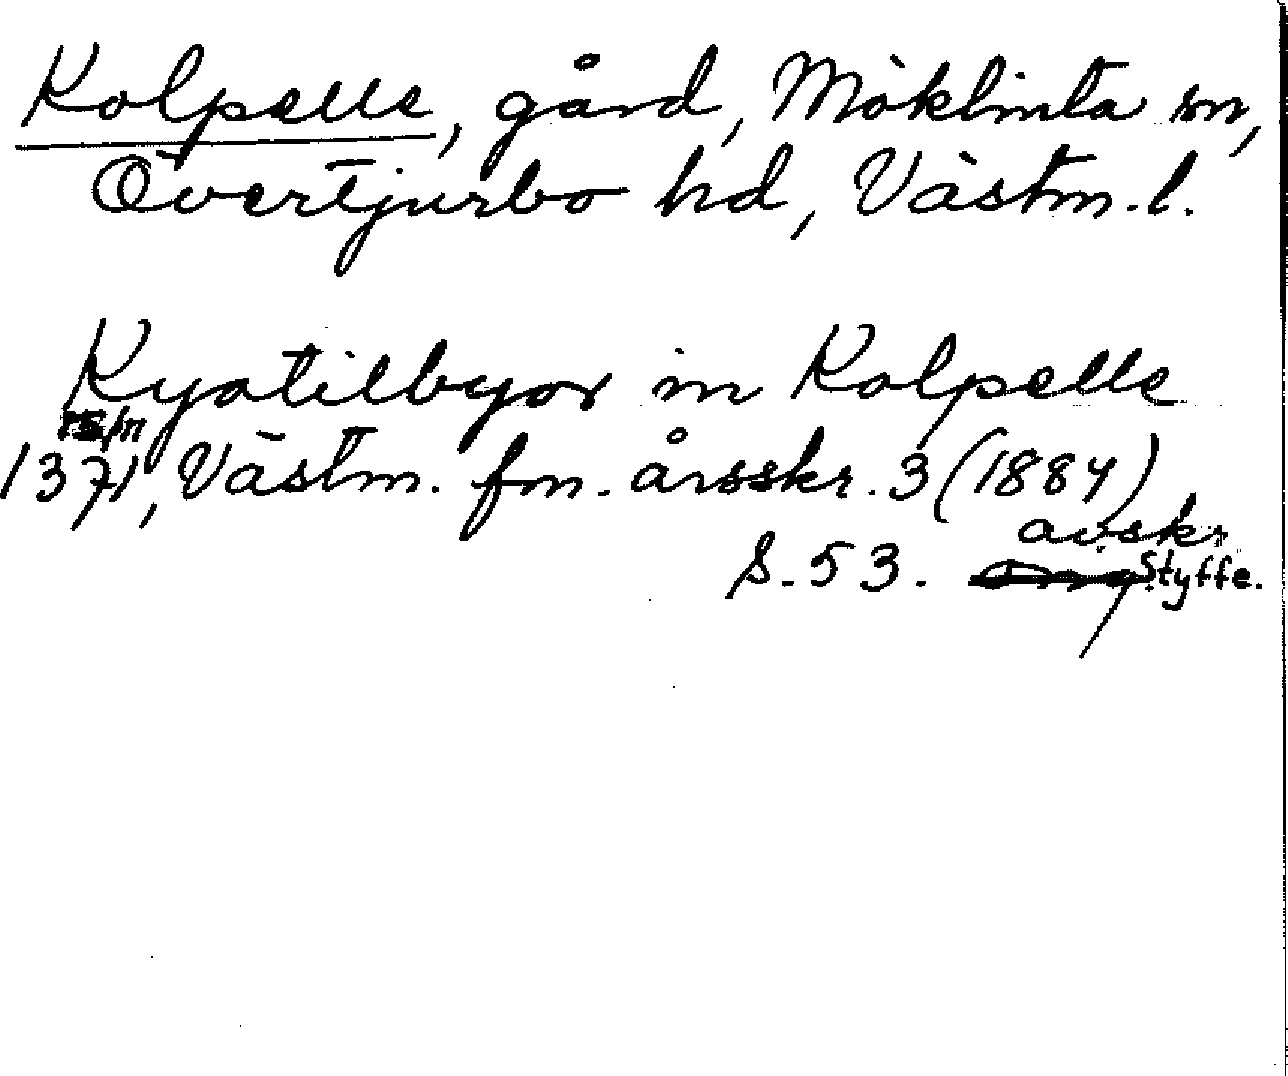 Kolpelle, gård, Möklinta sn,
Övertjurbo hd, Västm. l.
Kyatilbyor in Kolpelle
1371, Västm. fm. årsskr. 3 (1884)
avskr
S. 53. Styffe.